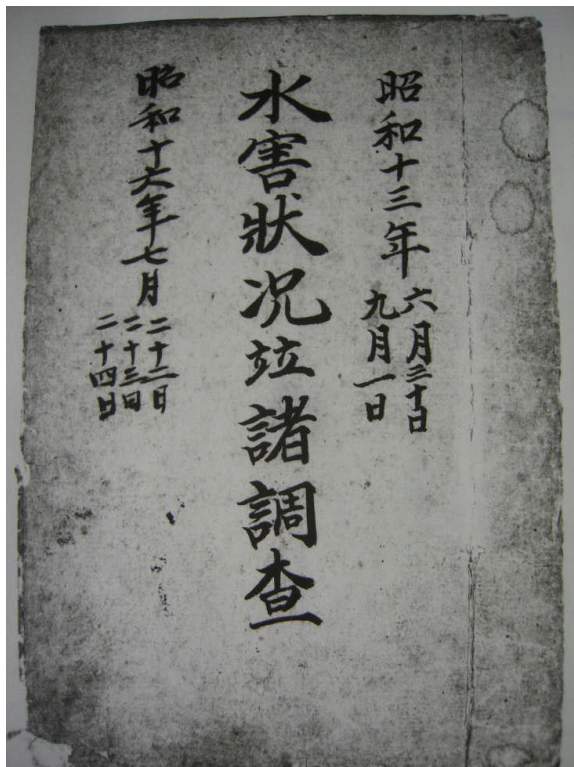 昭和十三年
六月三十日
九月一日
水害状況竝諸調査
昭和十六年七月
二十二日
二十三日
二十四日